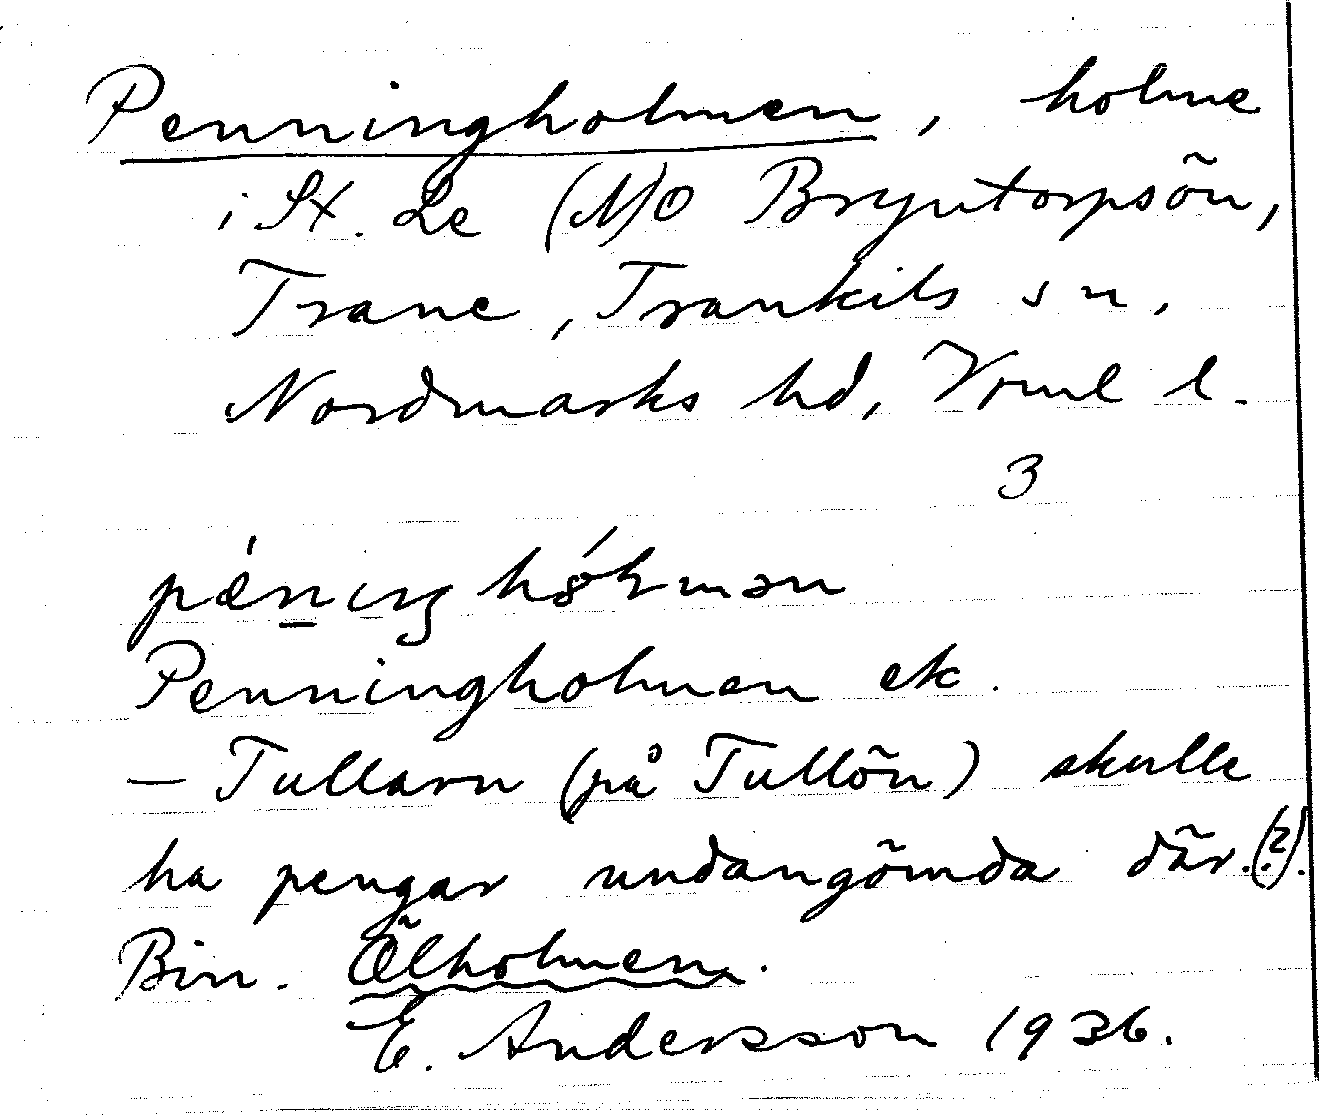 Penningholmen, holme
i St. Le (N)O Bryntorpsön,
Trane, Trankils sn,
Nordmarks hd, Vrml l.
3
Penningholmen ek.
— Tullarn (på Tullön) skulle
ha pengar undangömda där.(?).
Bin. Ölholmen.
E. Andersson 1936.